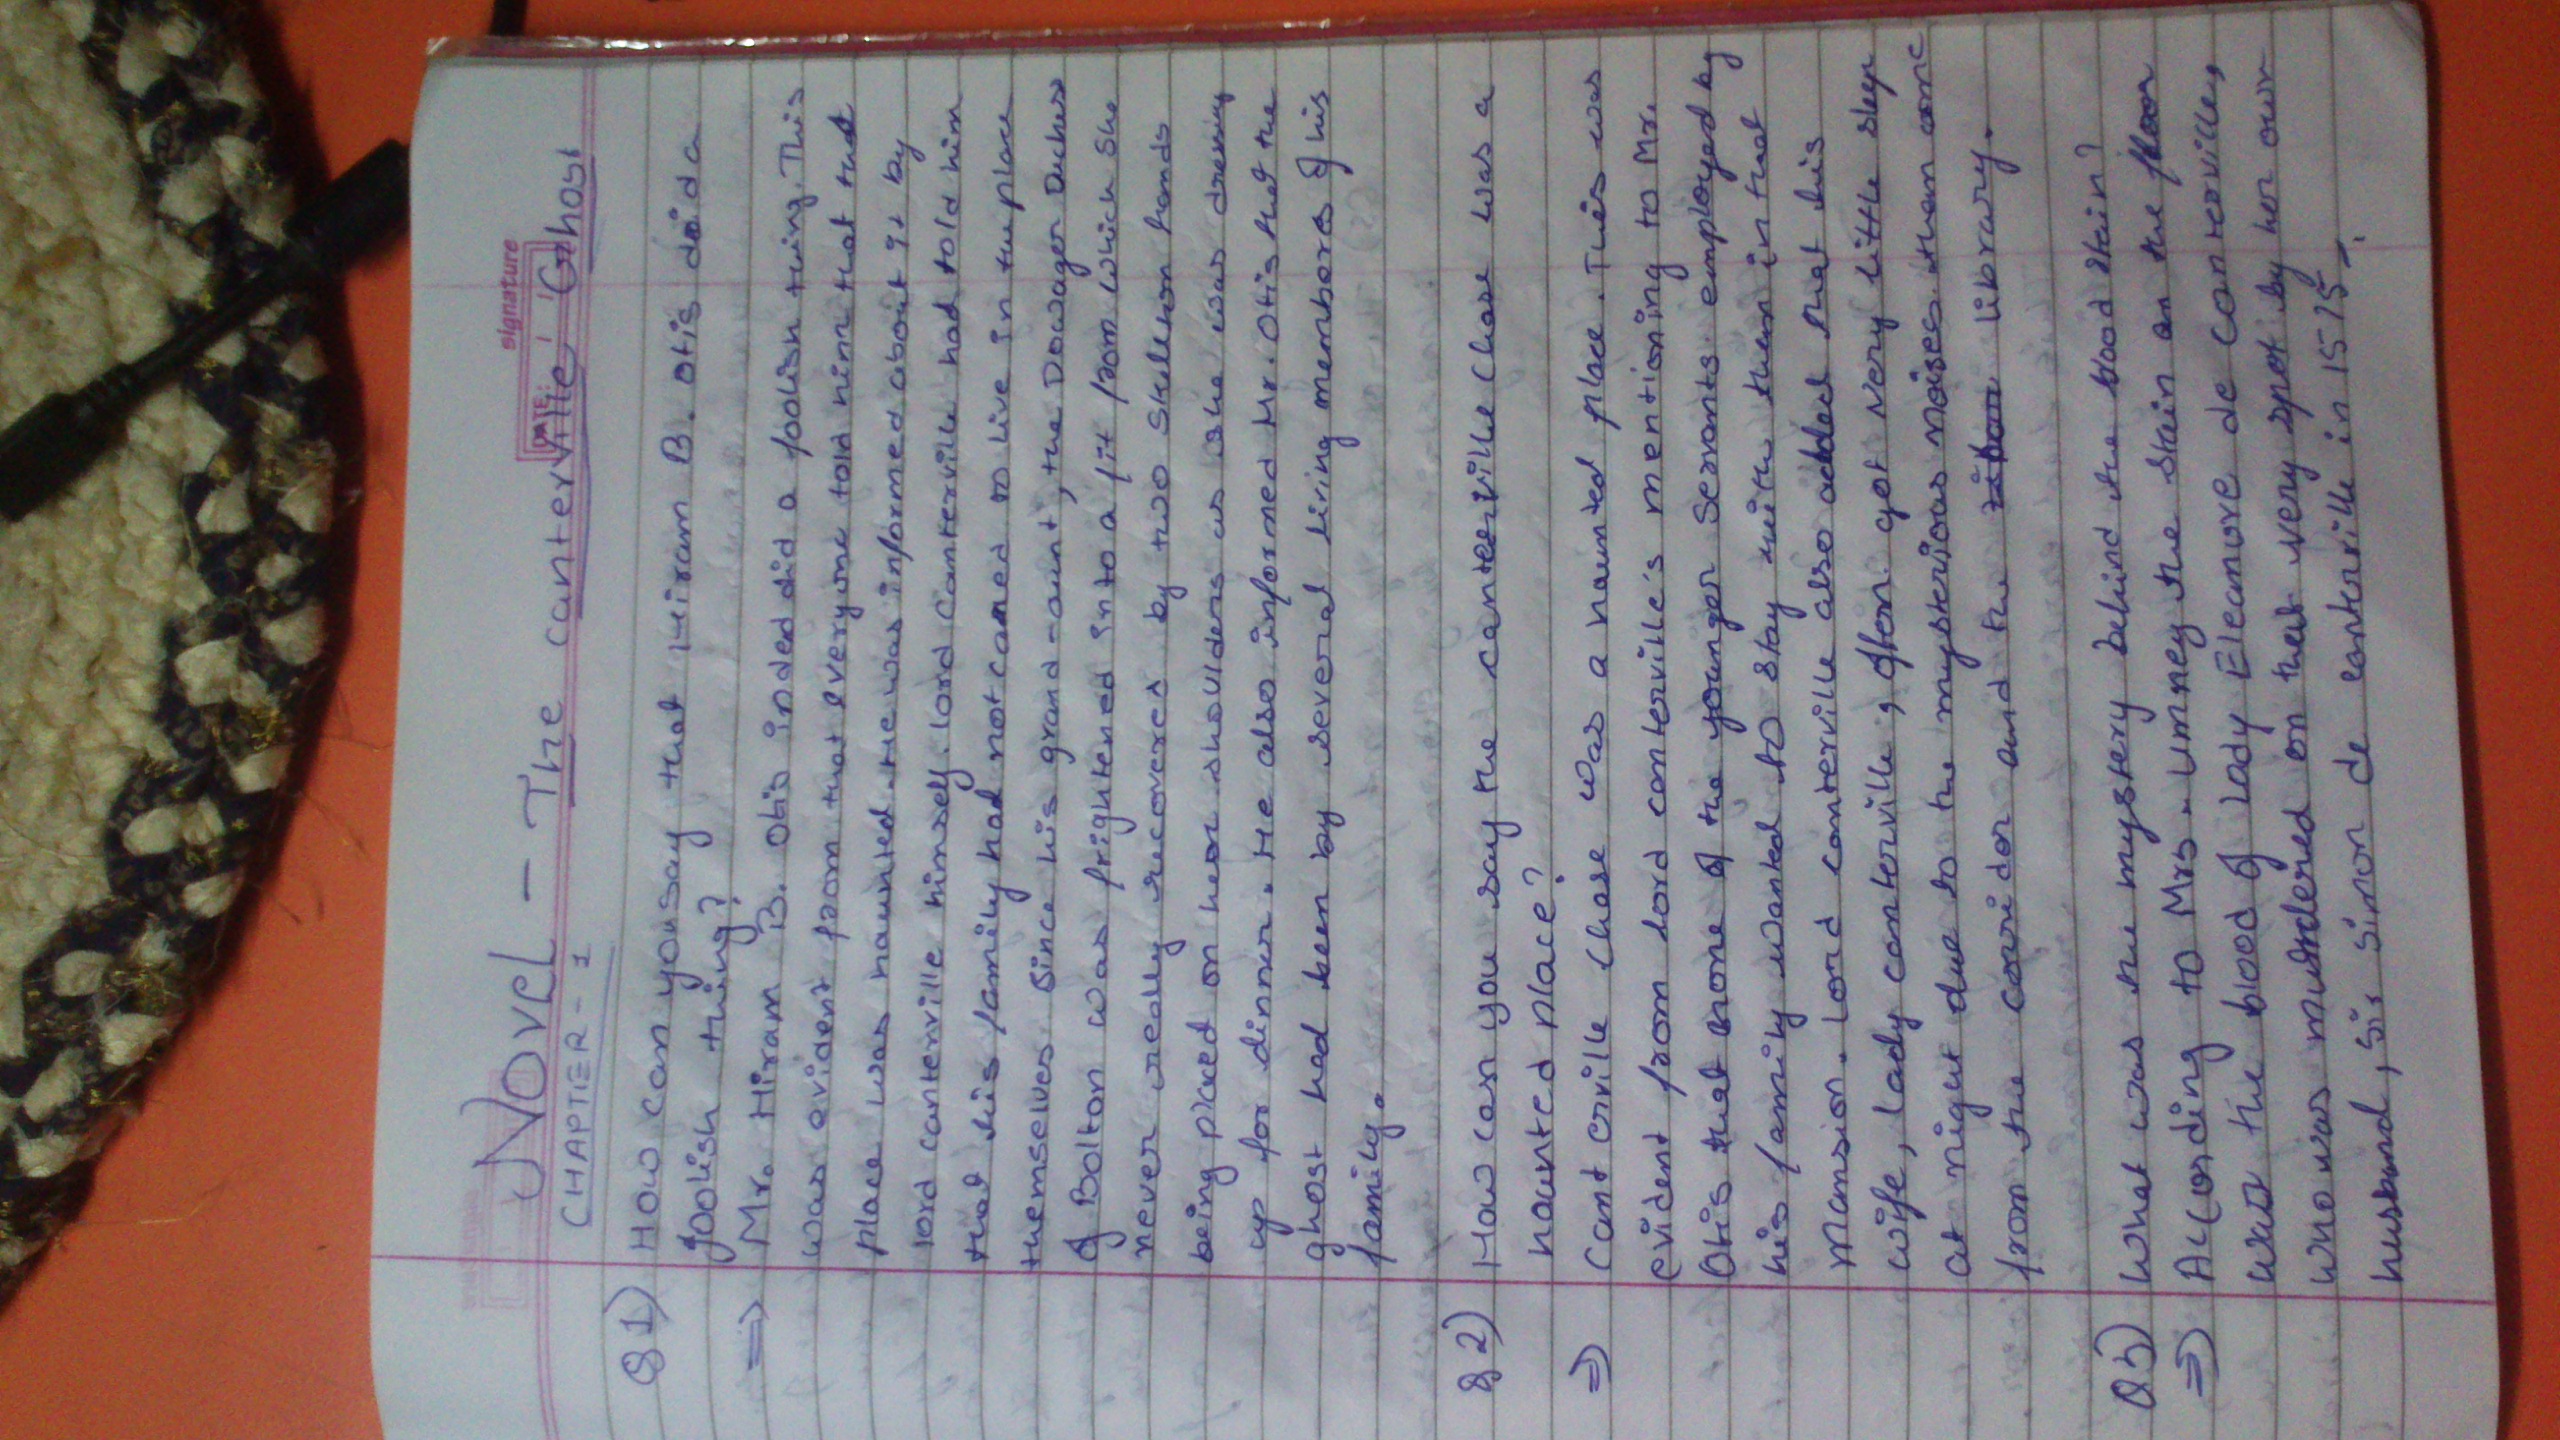 signature
DATE: / /
Novel - The canterville Ghost
CHAPTER - 1
Q1) How can you say that Hiram B. Otis did a
foolish thing?
⇒ Mr. Hiram B. Otis inded did a foolish thing. This
was evident from that everyone told him that that
place was haunted. He was informed about it by
lord canterville himself. lord Canterville had told him
that his family had not caned to live in the place
themselves since his grand-aunt, the Dowager Duchess
of Bolton was frightened into a fit from which she
never really recovered by two skeleton hands
being placed on her shoulders as she was dressing
up for dinner. He also informed Mr. Otis that the
ghost had been by several living members of his
family.
Q2) How can you say the canterville Chase was a
haunted place?
⇒ Canterville Chase was a haunted place. This was
evident from lord canterville's mentioning to Mr.
Otis that none of the younger servants employed by
his family wanted to stay with them in that
mansion. Lord canterville also added that his
wife, lady canterville, often got very little sleep
at night due to the mysterious noises than come
from the corridor and the library.
Q3) What was the mystery behind the blood stain?
⇒ According to Mrs. Umney the stain on the floor
was the blood of lady Eleanore de canterville,
who was murdered on that very spot by her own
husband, Sir Simon de canterville in 1575.